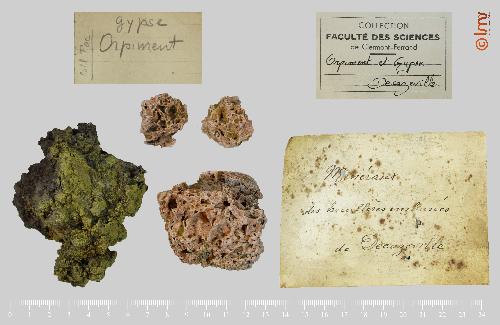 gypse
Orpiment
COLLECTION
FACULTÉ DES SCIENCES
de Clermont-Ferrand
Orpiment et Gypse
Decazeville
Minéraux
des houillères embrasées
de Decazeville
lmv
0 1 2 3 4 5 6 7 8 9 10 11 12 13 14 15 16 17 18 19 20 21 22 23 24